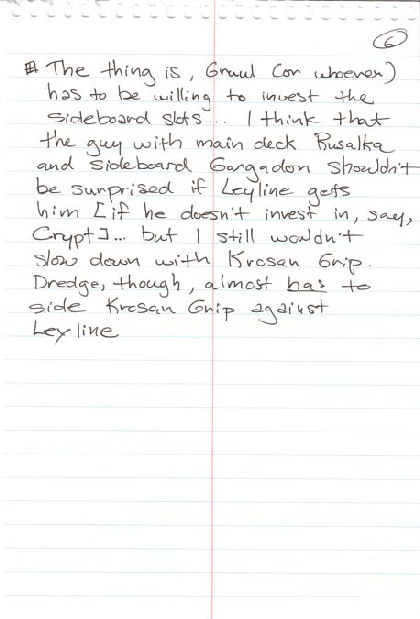 6
# The thing is, Gruul (or whoever)
has to be willing to invest the
sideboard slots... I think that
the guy with main deck Rusalka
and sideboard Gargadon shouldn't
be surprised if Leyline gets
him [if he doesn't invest in, say,
Crypt]... but I still wouldn't
slow down with Krosan Grip.
Dredge, though, almost has to
side Krosan Grip against
Leyline